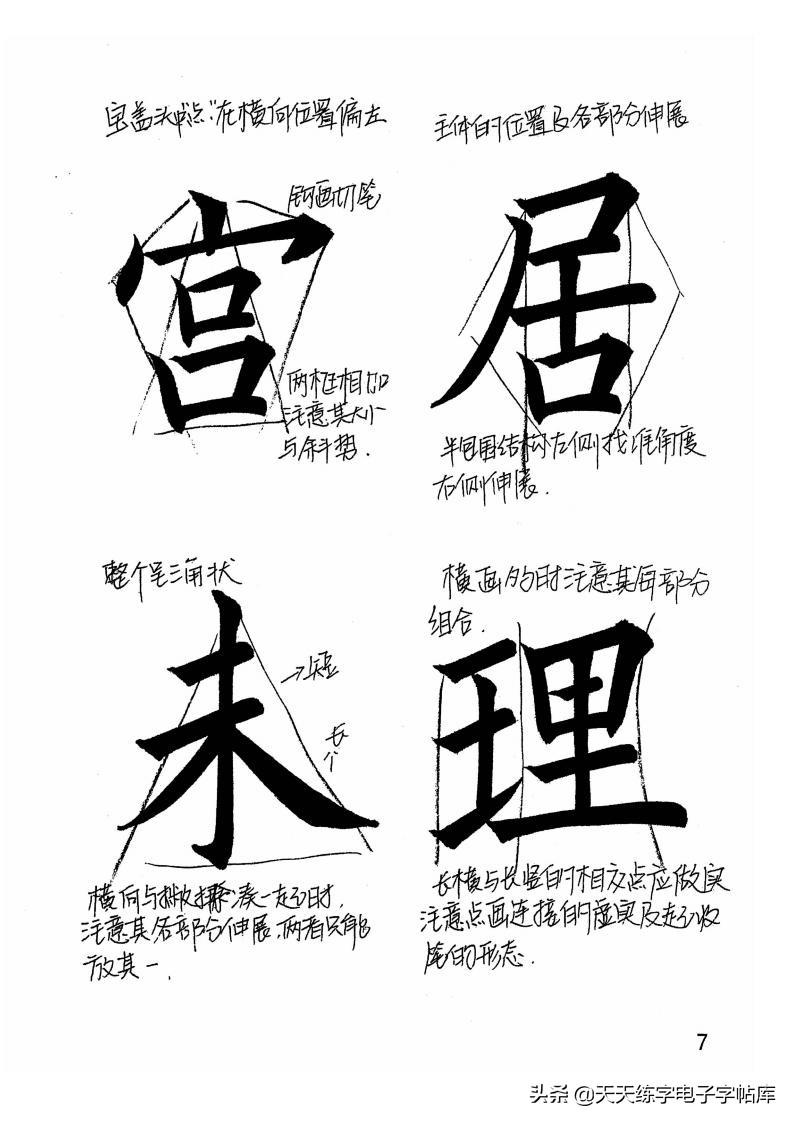 宝盖头“点”在横向位置偏左
主体的位置及各部分伸展
钩画切笔
宫
居
两框相加
注意其大小
与斜势.
半包围结构左侧找准角度
右侧伸展.
整个呈三角状
横画多时注意其每部分
组合.
→短
长
个
未
理
横向与撇捺凑一起时,
注意其各部分伸展,两者只能
放其一.
长横与长竖的相交点应做实
注意点画连接的虚实及起收
笔的形态.
7
头条 @天天练字电子字帖库